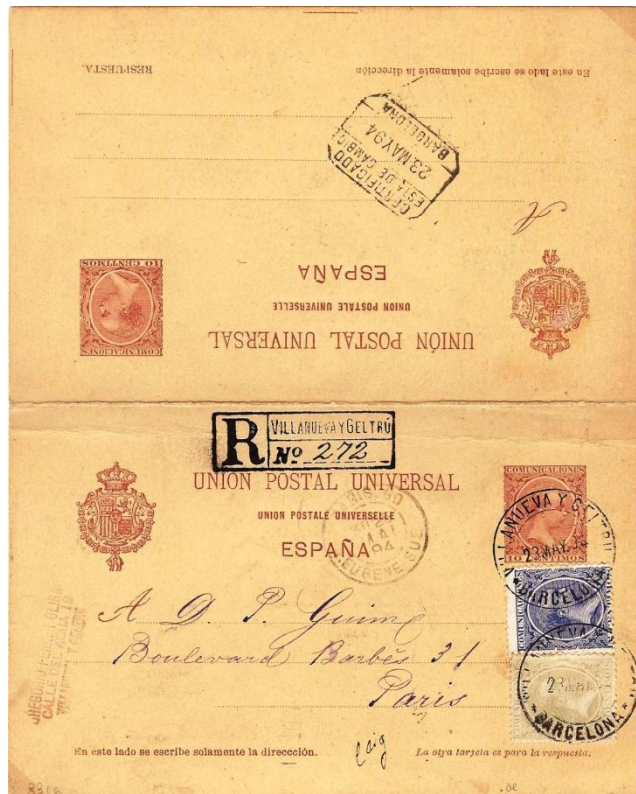 RESPUESTA.
En este lado se escribe solamente la dirección
CERTIFICADO
ESTA DE CAMBIO
23 MAY 94
BARCELONA
A
10 CENTIMOS
COMUNICACIONES
ESPAÑA
UNION POSTALE UNIVERSELLE
UNIÓN POSTAL UNIVERSAL
R
VILLANUEVA Y GELTRÚ
Nº 272
UNION POSTAL UNIVERSAL
UNION POSTALE UNIVERSELLE
ESPAÑA
COMUNICACIONES
10 CENTIMOS
VILLANUEVA Y GELTRU
23 MAY
BARCELONA
94
EUGENE SUE
A D. P. Guim
Boulevard Barbés 31
Paris
CALLE DEL AGUA 19
BARCELONA
En este lado se escribe solamente la direccción.
La otra tarjeta es para la respuesta.